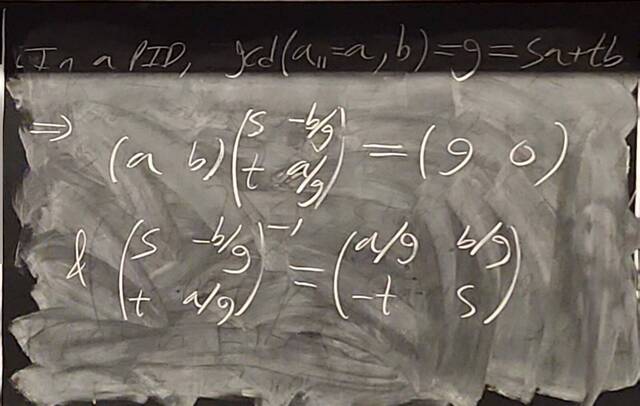 In a PID, gcd(a₁₁=a, b)=g=sa+tb
⇒ (a b)(s -b/g
t a/g)=(g 0)
& (s -b/g
t a/g)⁻¹=(a/g b/g
-t s)